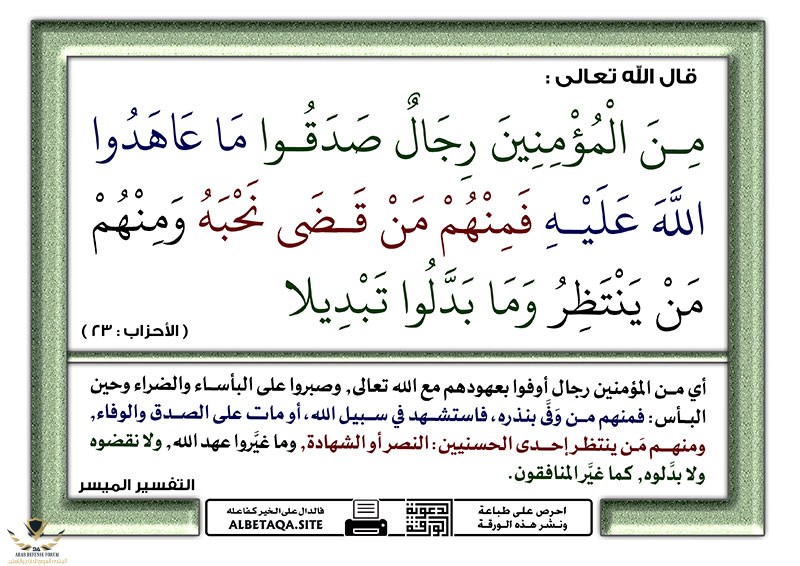 قال الله تعالى :
مِـنَ الْمُؤْمِنِينَ رِجَالٌ صَدَقُـوا مَا عَاهَدُوا
اللَّهَ عَلَيْـهِ فَمِنْهُمْ مَنْ قَـضَى نَحْبَهُ وَمِنْهُمْ
مَنْ يَنْتَظِرُ وَمَا بَدَّلُوا تَبْدِيلا
( الأحزاب : ٢٣ )
أي مـن المؤمنين رجال أوفوا بعهودهم مع الله تعالى, وصبروا على البأساء والضراء وحين
البـأس: فمنهم مـن وَفَّى بنذره، فاستشهد في سـبيل الله، أو مات على الصدق والوفاء,
ومنهـم مَن ينتظر إحدى الحسنيين: النصر أو الشهادة, وما غيَّروا عهد الله, ولا نقضوه
ولا بدَّلوه, كما غيَّر المنافقون.
التفسير الميسر
احرص على طباعة
ونشر هذه الورقة
الدعوية
الورقة
فالدال على الخير كفاعله
ALBETAQA.SITE
DA
ARAB DEFENSE FORUM